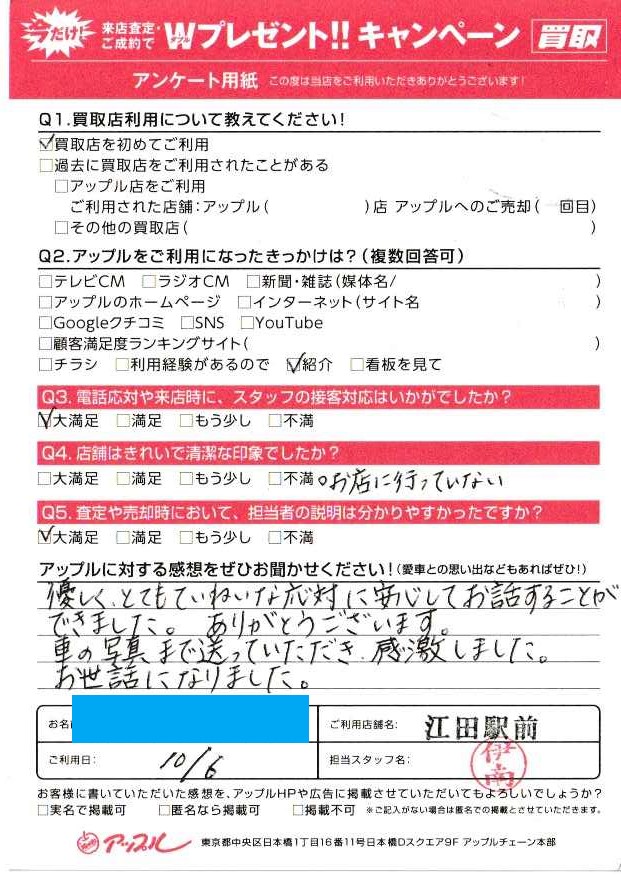 今だけ! 来店査定・ご成約で Wダブルプレゼント!! キャンペーン 買取
アンケート用紙 この度は当店をご利用いただきありがとうございます!
Q1.買取店利用について教えてください!
☑買取店を初めてご利用
□過去に買取店をご利用されたことがある
□アップル店をご利用
ご利用された店舗:アップル( )店 アップルへのご売却( 回目)
□その他の買取店( )
Q2.アップルをご利用になったきっかけは?(複数回答可)
□テレビCM □ラジオCM □新聞・雑誌(媒体名/ )
□アップルのホームページ □インターネット(サイト名 )
□Googleクチコミ □SNS □YouTube
□顧客満足度ランキングサイト( )
□チラシ □利用経験があるので ☑紹介 □看板を見て
Q3.電話応対や来店時に、スタッフの接客対応はいかがでしたか?
☑大満足 □満足 □もう少し □不満
Q4.店舗はきれいで清潔な印象でしたか?
□大満足 □満足 □もう少し □不満 。お店に行っていない
Q5.査定や売却時において、担当者の説明は分かりやすかったですか?
☑大満足 □満足 □もう少し □不満
アップルに対する感想をぜひお聞かせください!(愛車との思い出などもあればぜひ!)
優しく、とてもていねいな応対に安心してお話することが
できました。 ありがとうございます。
車の写真まで送っていただき、感激しました。
お世話になりました。
お名 ご利用店舗名: 江田駅前
ご利用日: 10/6 担当スタッフ名: 伊南
お客様に書いていただいた感想を、アップルHPや広告に掲載させていただいてもよろしいでしょうか?
□実名で掲載可 □匿名なら掲載可 □掲載不可 ※ご記入がない場合は匿名での掲載とさせていただきます。
アップル 東京都中央区日本橋1丁目16番11号日本橋Dスクエア9F アップルチェーン本部